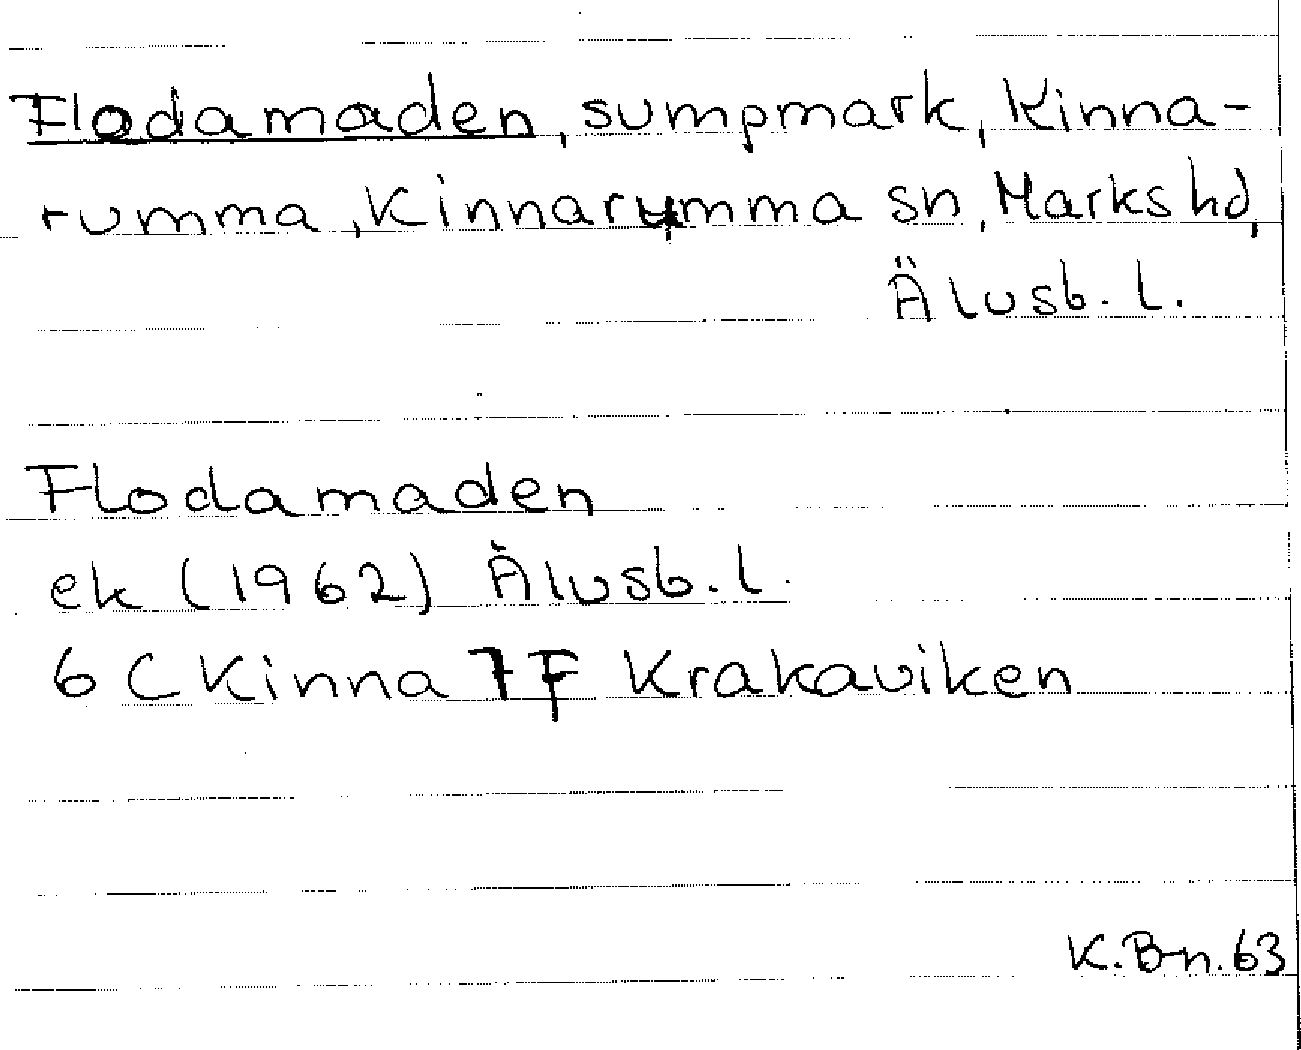 Flodamaden, sumpmark, Kinna-
rumma, Kinnarumma sn, Marks hd,
Älvsb. l.
Flodamaden
ek (1962) Älvsb. l.
6 C Kinna 7F Krakaviken
K.B-n. 63